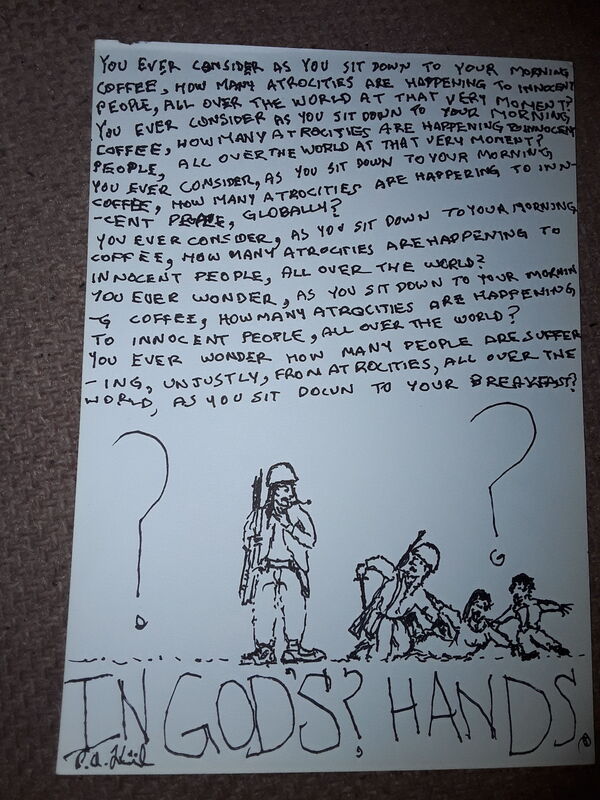 YOU EVER CONSIDER AS YOU SIT DOWN TO YOUR MORNING
COFFEE, HOW MANY ATROCITIES ARE HAPPENING TO INNOCENT
PEOPLE, ALL OVER THE WORLD AT THAT VERY MOMENT?
YOU EVER CONSIDER AS YOU SIT DOWN TO YOUR MORNING,
COFFEE, HOW MANY ATROCITIES ARE HAPPENING TO INNOCENT
PEOPLE, ALL OVER THE WORLD AT THAT VERY MOMENT?
YOU EVER CONSIDER, AS YOU SIT DOWN TO YOUR MORNING
COFFEE, HOW MANY ATROCITIES ARE HAPPERING TO INN-
-CENT PEOPLE, GLOBALLY?
YOU EVER CONSIDER, AS YOU SIT DOWN TO YOUR MORNING
COFFEE, HOW MANY ATROCITIES ARE HAPPENING TO
INNOCENT PEOPLE, ALL OVER THE WORLD?
YOU EVER WONDER, AS YOU SIT DOWN TO YOUR MORNIN
-G COFFEE, HOW MANY ATROCITIES ARE HAPPENING
TO INNOCENT PEOPLE, ALL OVER THE WORLD?
YOU EVER WONDER HOW MANY PEOPLE ARE SUFFER
-ING, UNJUSTLY, FROM ATROCITIES, ALL OVER THE
WORLD, AS YOU SIT DOWN TO YOUR BREAKFAST?
? ?
IN GOD'S? HANDS.
P.A.